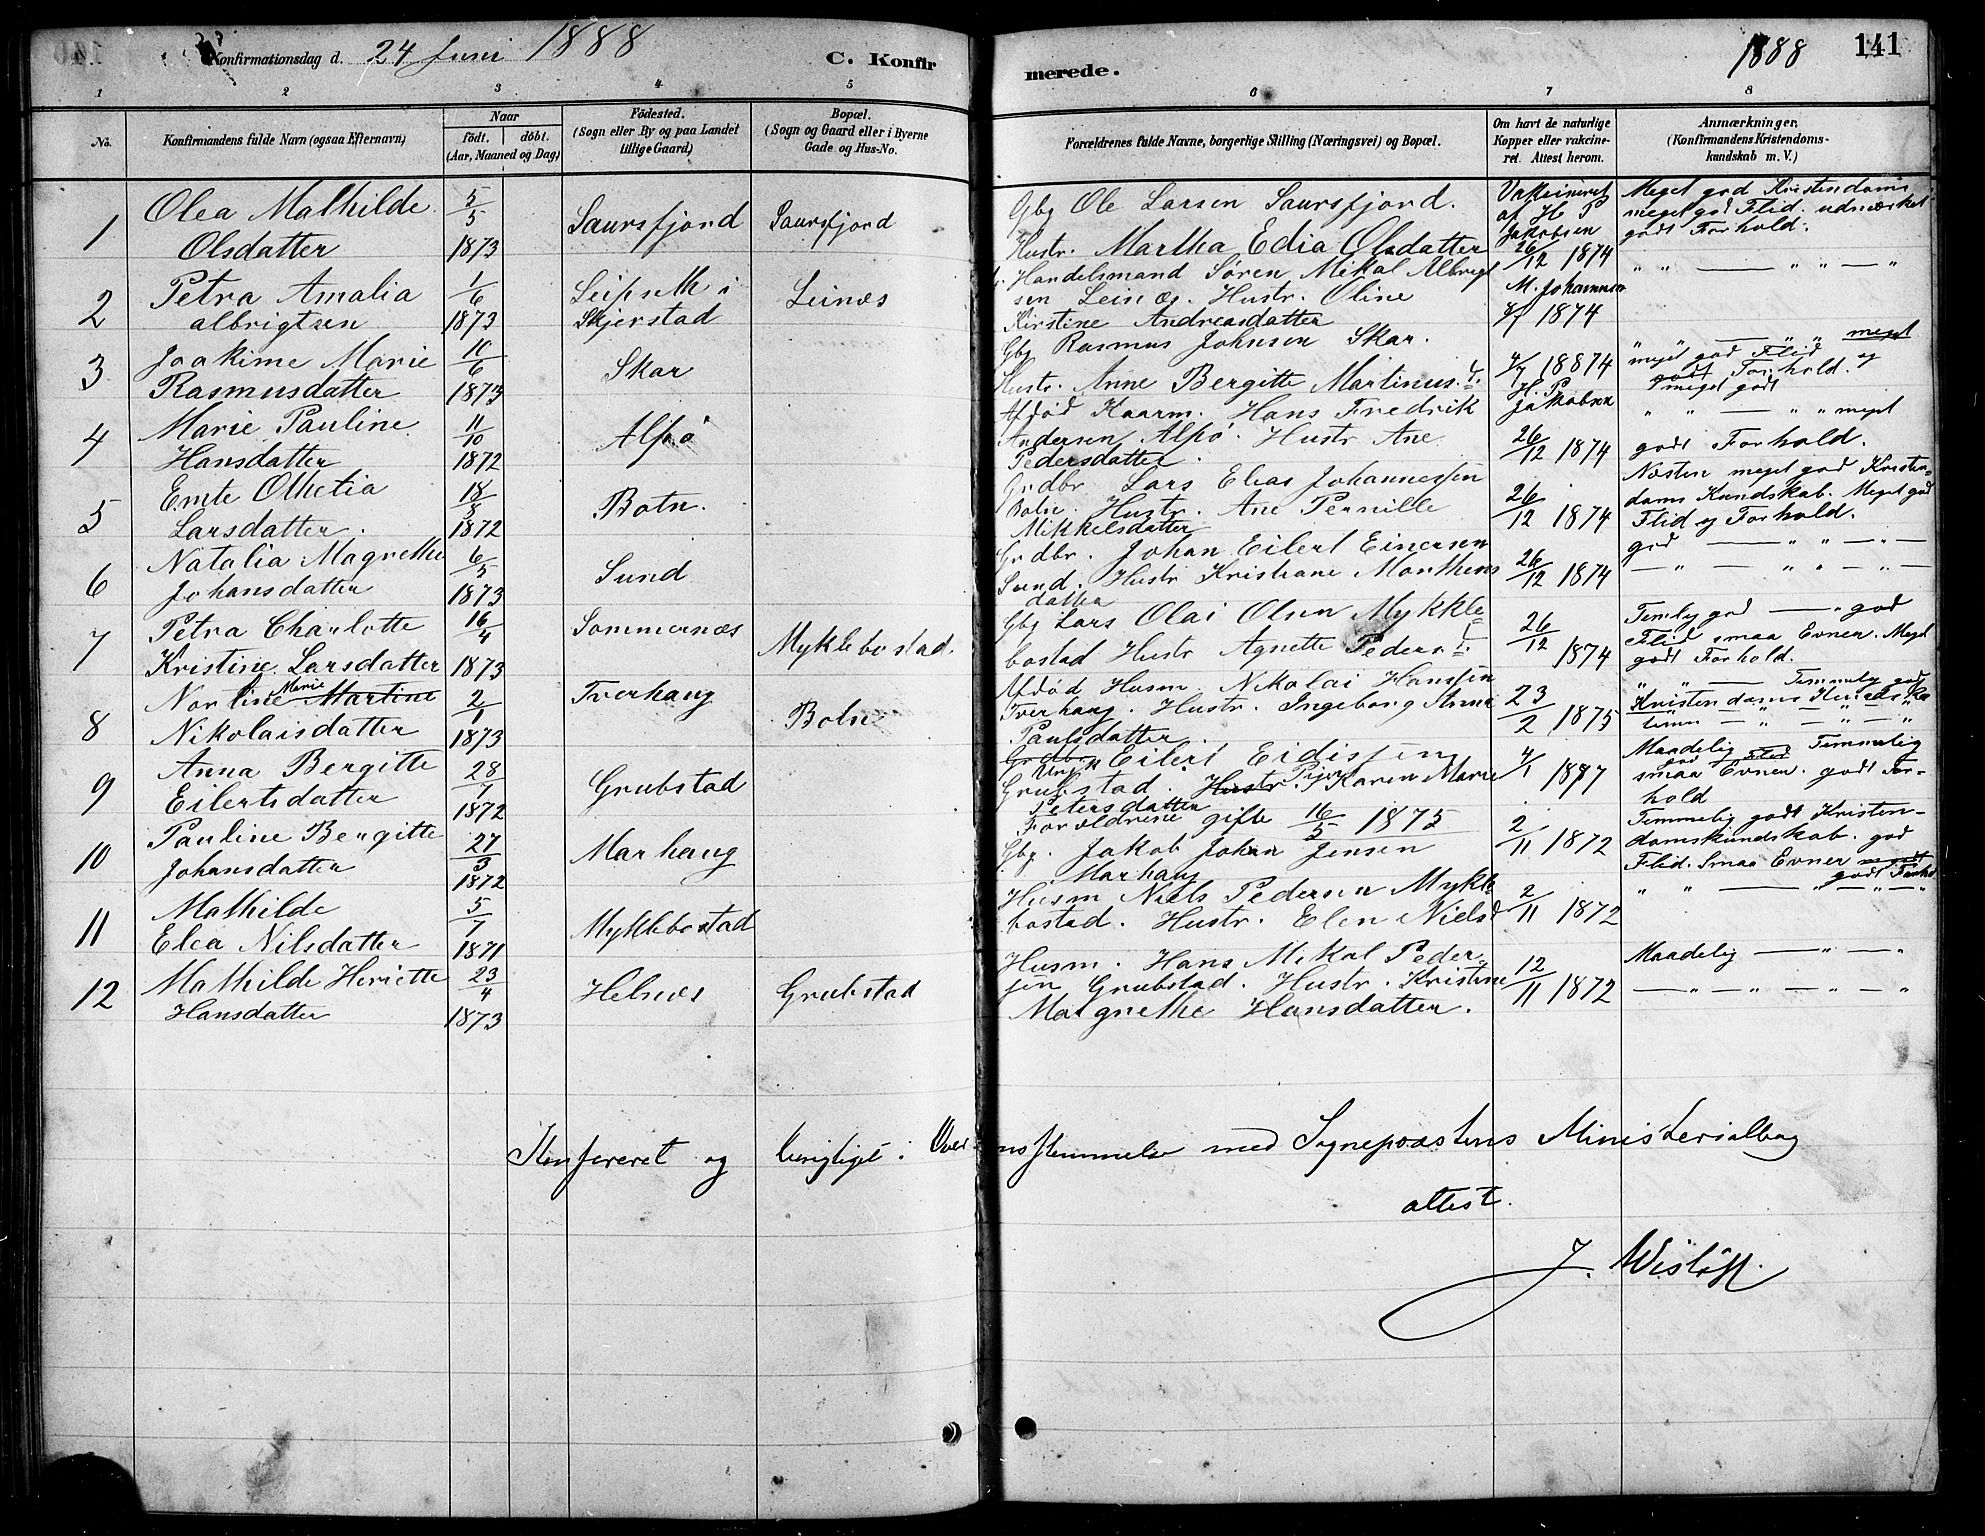 Konfirmationsdag d. 24 Juni 1888
C. Konfir
merede.
1888 141
1 2 3 4 5 6 7 8
No.
Konfirmandens fulde Navn (ogsaa Efternavn)
Naar
födt. döbt.
(Aar, Maaned og Dag)
Födested.
(Sogn eller By og paa Landet
tillige Gaard)
Bopæl.
(Sogn og Gaard eller i Byerne
Gade og Hus-No.
Forældrenes fulde Navne, borgerlige Stilling (Næringsvei) og Bopæl.
Om havt de naturlige
Kopper eller vakcine-
ret. Attest herom.
Anmærkninger,
(Konfirmandens Kristendoms-
kundskab m. V.)
1 Olea Mathilde
Olsdatter
5/5
1873
Saursfjord
Saursfjord
Gbg Ole Larsen Saursfjord.
Hustr. Martha Edia Olsdatter
Vakcineret
af H P
Jakobsen
26/12 1874
Meget god Kristendoms
meget god Flid. udmærket
godt Forhold.
2 Petra Amalia
albrigtsen
1/6
1873
Leifseth i
Skjerstad
Leinæs
Handelsmand Søren Mikal Albrigt
sen Leinæs. Hustr. Oline
Kirstine Andreasdatter
M. Johannsen
1874
" " — " " — "
3 Joakime Marie
Rasmusdatter
10/6
1873
Skar
Gbg Rasmus Johnsen Skar.
Hustr. Anne Bergitte Martinus. d.
4/7 18874
" — " " meget
meget god Flid og
godt Forhold.
meget godt
4 Marie Pauline
Hansdatter
11/10
1872
Alsø
Afdød Kaarm. Hans Fredrik
Andersen Alsø. Hustr Ane
Pedersdatter.
H. P.
Jakobsen
26/12 1874
" " — " " meget
godt Forhold.
5 Emte Othetia
Larsdatter.
18/8
1872
Botn.
Grdbr Lars Elias Johannessen
Botn. Hustr. Ane Pernille
Mikkelsdatter
26/12 1874
Næsten meget god Kristen-
doms Kundskab. Meget god
Flid og Forhold.
6 Natalia Magrethe
Johansdatter
6/5
1873
Sund
Grdbr. Johan Eilert Einersen
Sund. Hustr Kristiane Marthens
datter
26/12 1874
god — " " — " —
— " — " " — " —
7 Petra Charlotte
Kristine Larsdatter
16/4
1873
Sommernæs
Myklebostad.
Gbg Lars Olai Olsen Mykkle
bostad Hustr Agnette Peders d.
26/12
1874
Temlig god — " god
Flid smaa Evner. Meget
godt Forhold.
8 Norline Marie Martine
Nikolaisdatter
2/1
1873
Tverhaug
Botn
Afdød Husm. Nikolai Hanssen
Tverhaug. Hustr. Ingeborg Anna
Paulsdatter.
23/2 1875
" " — Temmelig god
Kristendoms Kundska
9 Anna Bergitte
Eilertsdatter
28/7
1872
Grubstad
Grdbr Ungk Eilert Eidissen
Grubstad. Hustr. Pigen Karen Marie
Petersdatter
Forældrene gifte 16/5 1875
4/1 1887
Maadelig Temmelig
smaa Evner. godt For-
hold
10 Pauline Bergitte
Johansdatter
27/3
1872
Marhaug
Gbg. Jakob Johan Jensen
Marhaug
2/11 1872
Temmelig godt Kristen-
domskundskab. god
Flid. Smaa Evner meget
godt Forho
11 Mathilde
Elea Nilsdatter
5/7
1871
Myklebostad
Husm Niels Pedersen Mykle
bostad. Hustr. Elen Nielsd
2/11 1872
" " — " — " —
12 Mathilde Heriette
Hansdatter
23/4
1873
Helnes
Grubstad
Husm. Hans Mikal Peder-
sen Grubstad. Hustr. Kristine
Margrethe Hansdatter.
12/11 1872
Maadelig — " — "
— " — " — " — "
Konfereret og berigtiget i Overensstemmelse med Sognepræstens Ministerialbog
attest.
J. Wisløff.